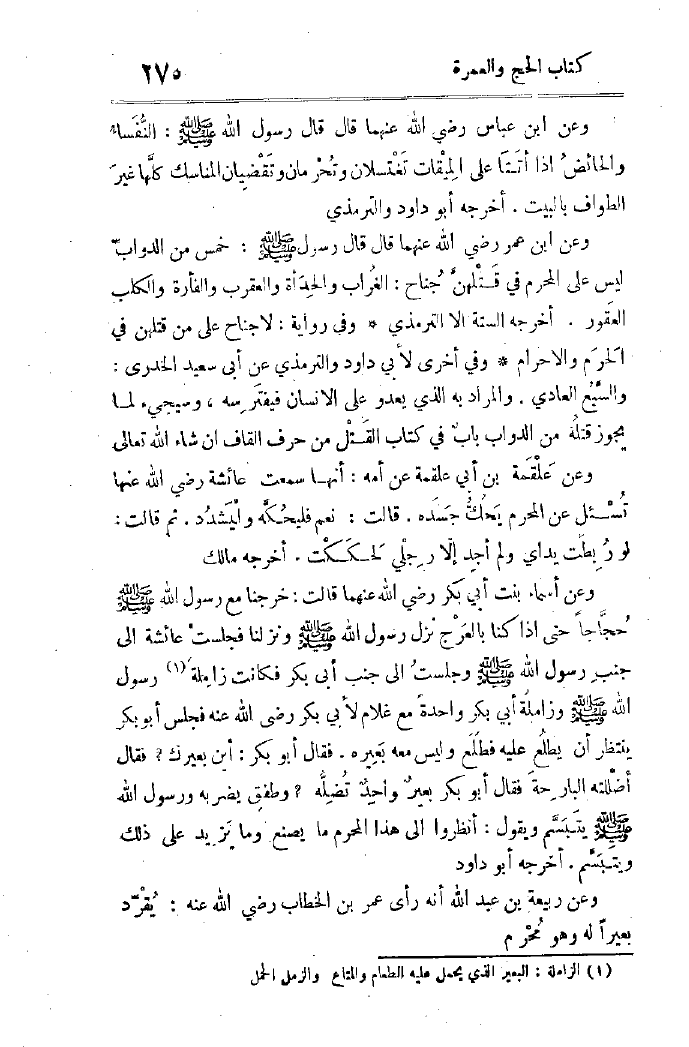 كتاب الحج والعمرة ٢٧٥
وعن ابن عباس رضي الله عنهما قال قال رسول الله ﷺ : النُّفَساءُ
والحائضُ اذا أتَتَا على المِيقات تَغْتسلان وتُحْرمان وتَقْضيان المناسك كلَّها غيرَ
الطواف بالبيت . أخرجه أبو داود والترمذي
وعن ابن عمر رضي الله عنهما قال قال رسول ﷺ : خمس من الدوابّ
ليس على المحرم في قَتْلهنَّ جُناح : الغُراب والحِدَأة والعقرب والفأرة والكلب
العقور . أخرجه الستة الا الترمذي * وفى رواية : لاجناح على من قتلهن في
الحرَم والاحرام * وفي أخرى لأبي داود والترمذي عن أبى سعيد الخدرى :
والسَّبُع العادي . والمراد به الذي يعدو على الانسان فيفترسه ، وسيجيء لما
يجوز قتلُه من الدواب بابٌ في كتاب القَتْل من حرف القاف ان شاء الله تعالى
وعن عَلْقمة بن أبي علقمة عن أمه : أنها سمعت عائشة رضي الله عنها
تُسْئل عن المحرم يَحُكُّ جَسَده . قالت : نعم فليحُكَّه وليَشدُد . ثم قالت :
لو رُبِطَت يداي ولم أجد إلّا رِجلي لَحكَكْت . أخرجه مالك
وعن أسماء بنت أبي بكر رضي الله عنهما قالت : خرجنا مع رسول الله ﷺ
حُجَّاجاً حتى اذا كنا بالعَرْج نزل رسول الله ﷺ ونزلنا فجلست عائشة الى
جنب رسول الله ﷺ وجلستُ الى جنب أبى بكر فكانت زاملة (١) رسول
الله ﷺ وزاملةُ أبي بكر واحدةً مع غلام لأبي بكر رضى الله عنه فجلس أبو بكر
ينتظر أن يطلُع عليه فطلَع وليس معه بَعِيره . فقال أبو بكر : أين بعيرك ؟ فقال
أضْلَلته البارحةَ فقال أبو بكر بعيرٌ واحِدٌ تُضِلُّه ؟ وطفق يضربه ورسول الله
ﷺ يتَبَسَّم ويقول : أنظروا الى هذا المحرم ما يصنع وما يَزيد على ذلك
ويتبَسَّم . أخرجه أبو داود
وعن ربيعة بن عبد الله أنه رأى عمر بن الخطاب رضي الله عنه : يُقرِّد
بعيراً له وهو مُحْرم
(١) الزاملة : البعير الذي يحمل عليه الطعام والمتاع والزمل الحمل